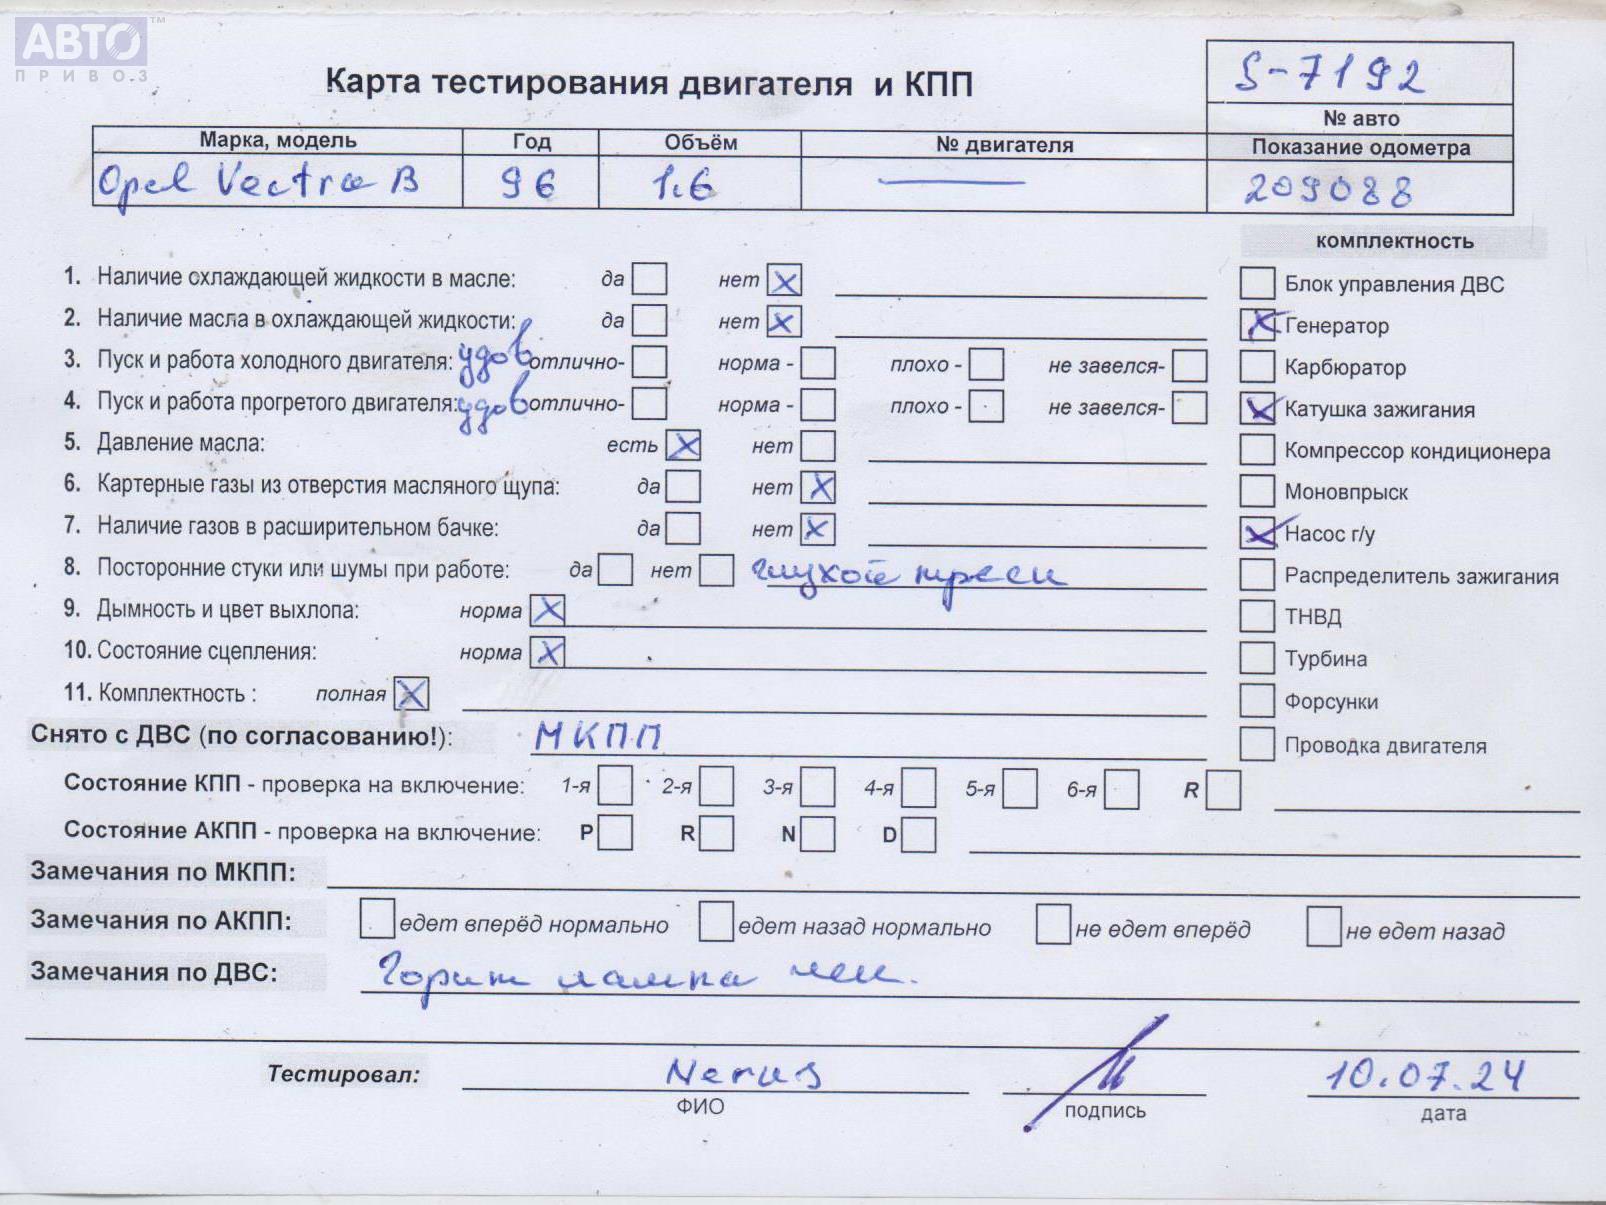 АВТО™
ПРИВОЗ
Карта тестирования двигателя и КПП
S-7192
№ авто
Марка, модель Год Объём № двигателя Показание одометра
Opel Vectra B 96 1.6 — 209088
комплектность
1. Наличие охлаждающей жидкости в масле: да нет X
Блок управления ДВС
2. Наличие масла в охлаждающей жидкости: да нет X
X Генератор
3. Пуск и работа холодного двигателя: удов отлично- норма - плохо - не завелся-
Карбюратор
4. Пуск и работа прогретого двигателя: удов отлично- норма - плохо - не завелся-
X Катушка зажигания
5. Давление масла: есть X нет
Компрессор кондиционера
6. Картерные газы из отверстия масляного щупа: да нет X
Моновпрыск
7. Наличие газов в расширительном бачке: да нет X
X Насос г/у
8. Посторонние стуки или шумы при работе: да нет глухой треск
Распределитель зажигания
9. Дымность и цвет выхлопа: норма X
ТНВД
10. Состояние сцепления: норма X
Турбина
11. Комплектность : полная X
Форсунки
Снято с ДВС (по согласованию!): МКПП
Проводка двигателя
Состояние КПП - проверка на включение: 1-я 2-я 3-я 4-я 5-я 6-я R
Состояние АКПП - проверка на включение: P R N D
Замечания по МКПП:
Замечания по АКПП: едет вперёд нормально едет назад нормально не едет вперёд не едет назад
Замечания по ДВС: Горит лампа
Тестировал: 10.07.24
ФИО подпись дата